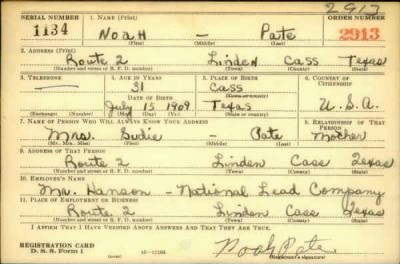 2917
SERIAL NUMBER 1. NAME (Print) ORDER NUMBER
1134 Noah - Pate 2913
(First) (Middle) (Last)
2. ADDRESS (Print)
Route 2 Linden Cass Texas
(Number and street or R. F. D. number) (Town) (County) (State)
3. TELEPHONE 4. AGE IN YEARS 5. PLACE OF BIRTH 6. COUNTRY OF CITIZENSHIP
— 31 Cass
DATE OF BIRTH (Town or county)
July 15 1909 Texas U.S.A.
(Exchange) (Number) (Mo.) (Day) (Yr.) (State or country)
7. NAME OF PERSON WHO WILL ALWAYS KNOW YOUR ADDRESS 8. RELATIONSHIP OF THAT PERSON
Mrs. Sudie - Pate Mother
(Mr., Mrs., Miss) (First) (Middle) (Last)
9. ADDRESS OF THAT PERSON
Route 2 Linden Cass Texas
(Number and street or R. F. D. number) (Town) (County) (State)
10. EMPLOYER'S NAME
Mr. Hanson - National Lead Company
11. PLACE OF EMPLOYMENT OR BUSINESS
Route 2 Linden Cass Texas
(Number and street or R. F. D. number) (Town) (County) (State)
I AFFIRM THAT I HAVE VERIFIED ABOVE ANSWERS AND THAT THEY ARE TRUE.
REGISTRATION CARD
D. S. S. Form 1 16-17105 Noah Pate
(Registrant's signature)